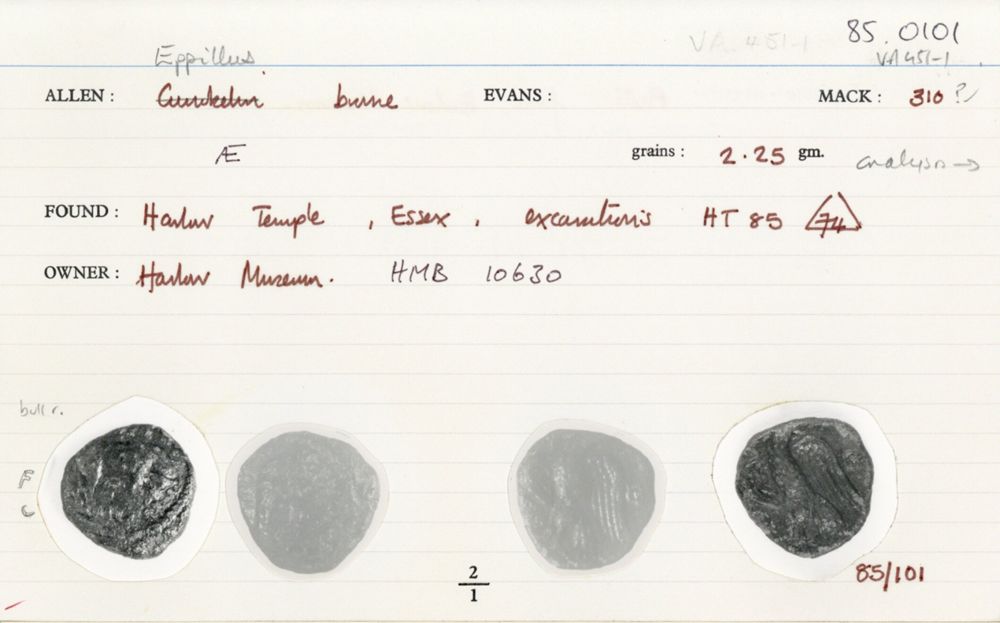 VA 451-1 85.0101
Eppillus VA 451-1
ALLEN : Cunobelin bronze EVANS : MACK : 310 ?
Æ grains : 2.25 gm. analysis →
FOUND : Harlow Temple , Essex , excavations HT 85 74
OWNER : Harlow Museum. HMB 10630
bull r.
F
C
2
1
85/101